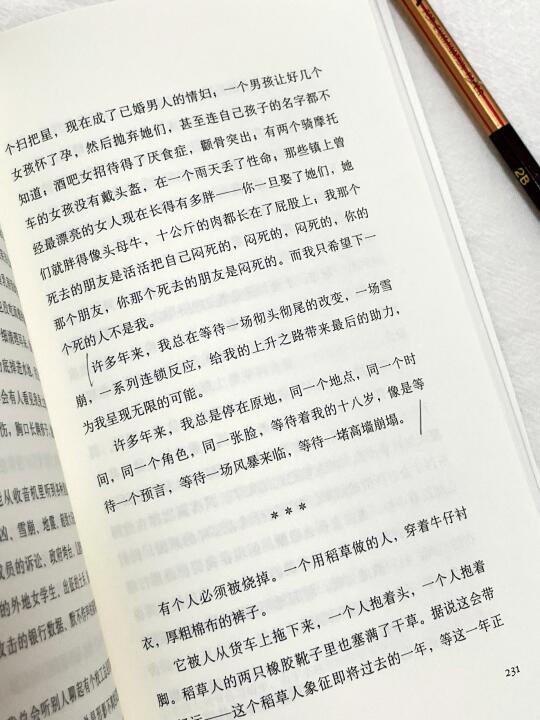 个扫把星，现在成了已婚男人的情妇；一个男孩让好几个
女孩怀了孕，然后抛弃她们，甚至连自己孩子的名字都不
知道；酒吧女招待得了厌食症，颧骨突出；有两个骑摩托
车的女孩没有戴头盔，在一个雨天丢了性命；那些镇上曾
经最漂亮的女人现在长得有多胖——你一旦娶了她们，她
们就胖得像头母牛，十公斤的肉都长在了屁股上；我那个
死去的朋友是活活把自己闷死的，闷死的，闷死的，你的
那个朋友，你那个死去的朋友是闷死的。而我只希望下一
个死的人不是我。
许多年来，我总在等待一场彻头彻尾的改变，一场雪
崩，一系列连锁反应，给我的上升之路带来最后的助力，
为我呈现无限的可能。
许多年来，我总是停在原地，同一个地点，同一个时
间，同一个角色，同一张脸，等待着我的十八岁，像是等
待一个预言，等待一场风暴来临，等待一堵高墙崩塌。
***
有个人必须被烧掉。一个用稻草做的人，穿着牛仔衬
衣，厚粗棉布的裤子。
它被人从货车上拖下来，一个人抱着头，一个人抱着
脚。稻草人的两只橡胶靴子里也塞满了干草。据说这会带
好运——这个稻草人象征即将过去的一年，等这一年正
231
2B